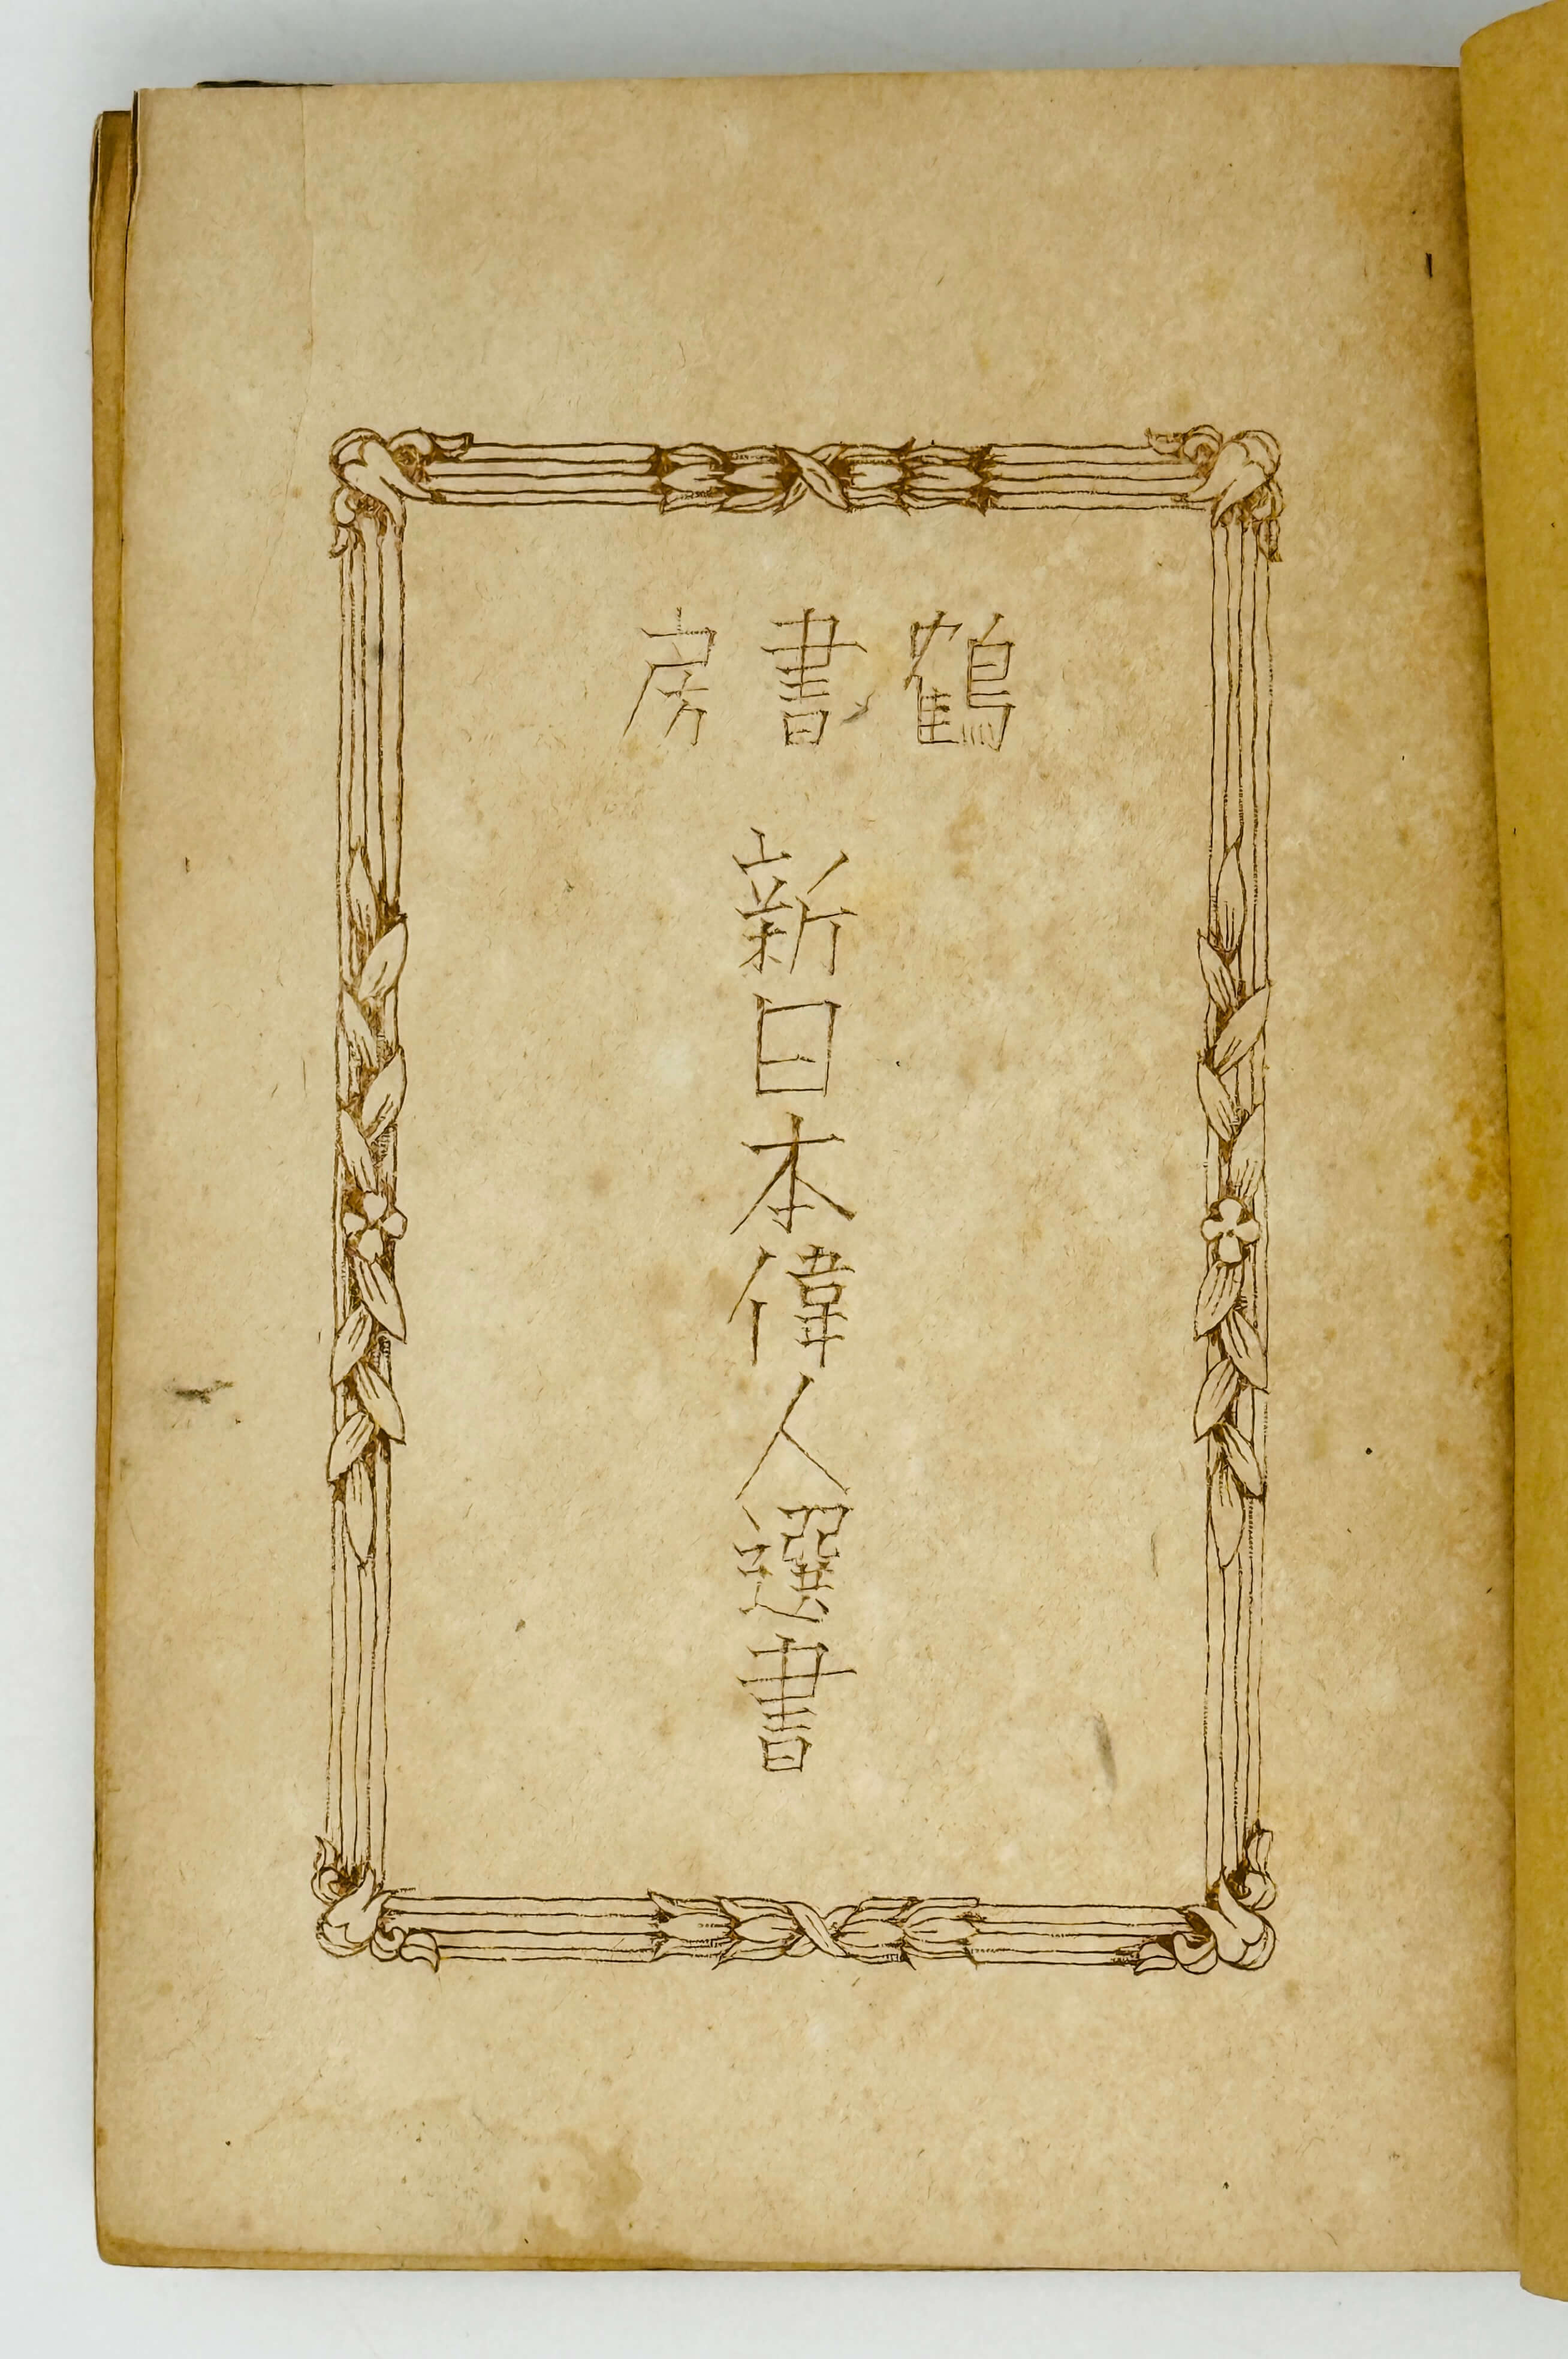 鶴書房
新日本偉人選書